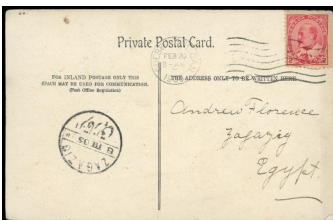 Private Postal Card.
FEB 20
FOR INLAND POSTAGE ONLY THIS
SPACE MAY BE USED FOR COMMUNICATION.
(Post Office Regulation)
THE ADDRESS ONLY TO BE WRITTEN HERE.
Andrew Florence
Zagazig
Egypt.
ZAGAZIG